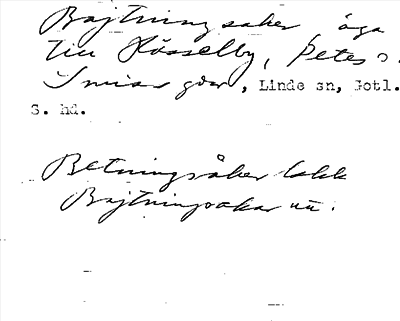 Bajtningsaker äga
till Hässelby, Petes o.
Smiss gdar, Linde sn, Gotl.
S. hd.
Betningsåker lakk
Bajtningsakar nu.